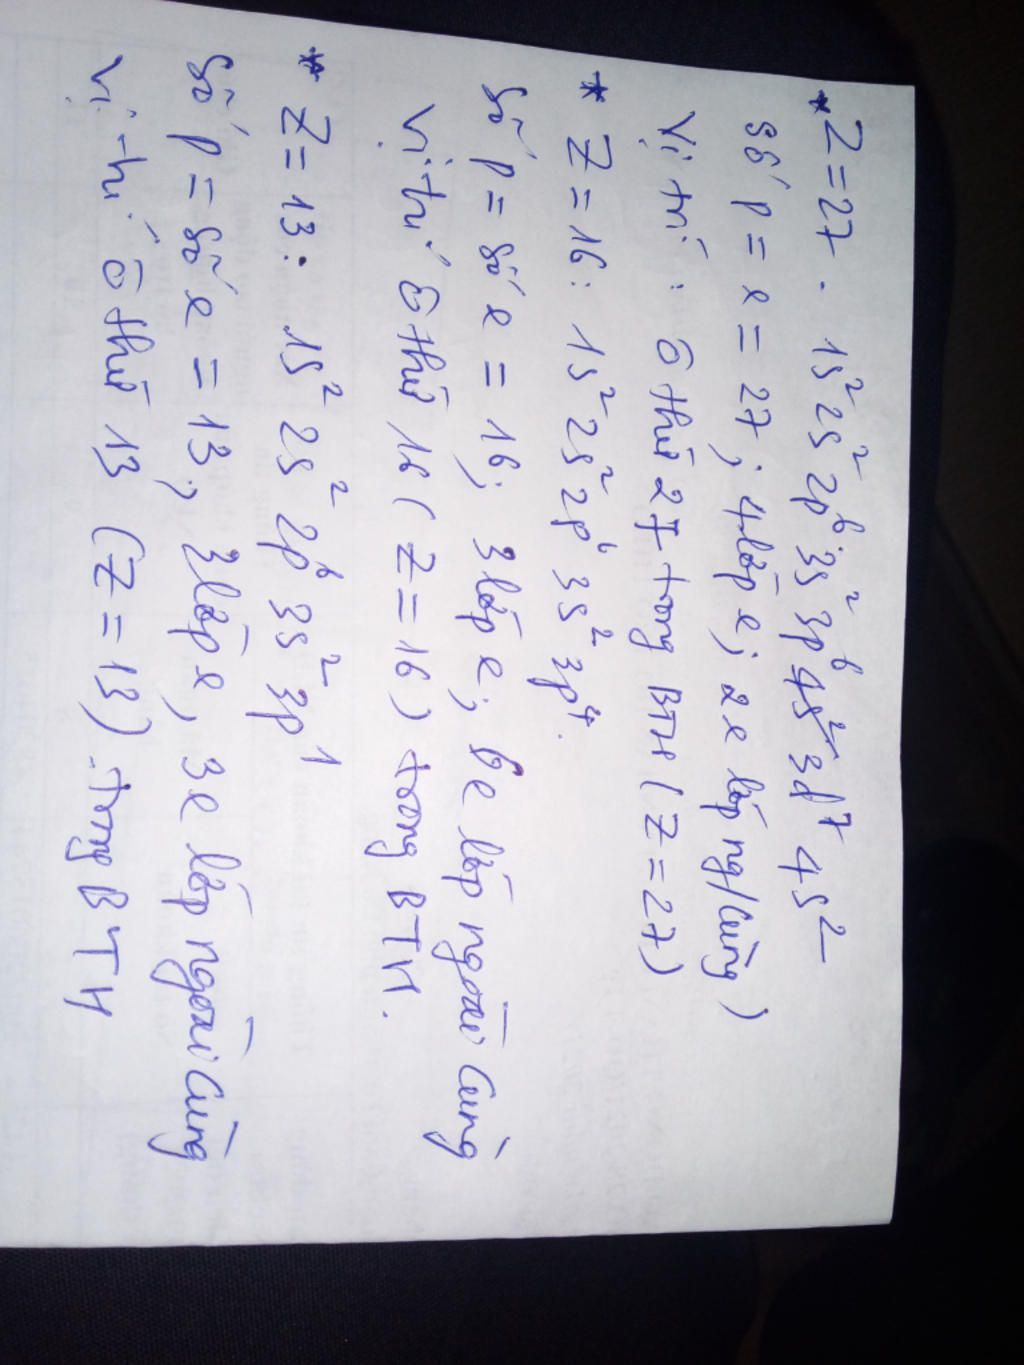 * Z = 27. 1s² 2s² 2p⁶ 3s² 3p⁶ 4s² 3d⁷ 4s²
số p = e = 27; 4 lớp e; 2e lớp ng/cùng)
Vị trí: ô thứ 27 trong BTH (Z = 27)
* Z = 16: 1s² 2s² 2p⁶ 3s² 3p⁴.
số p = số e = 16; 3 lớp e; 6e lớp ngoài cùng
Vị trí ô thứ 16 (Z = 16) trong BTH.
* Z = 13: 1s² 2s² 2p⁶ 3s² 3p¹
số p = số e = 13; 3 lớp e, 3e lớp ngoài cùng
Vị trí ô thứ 13 (Z = 13) trong BTH